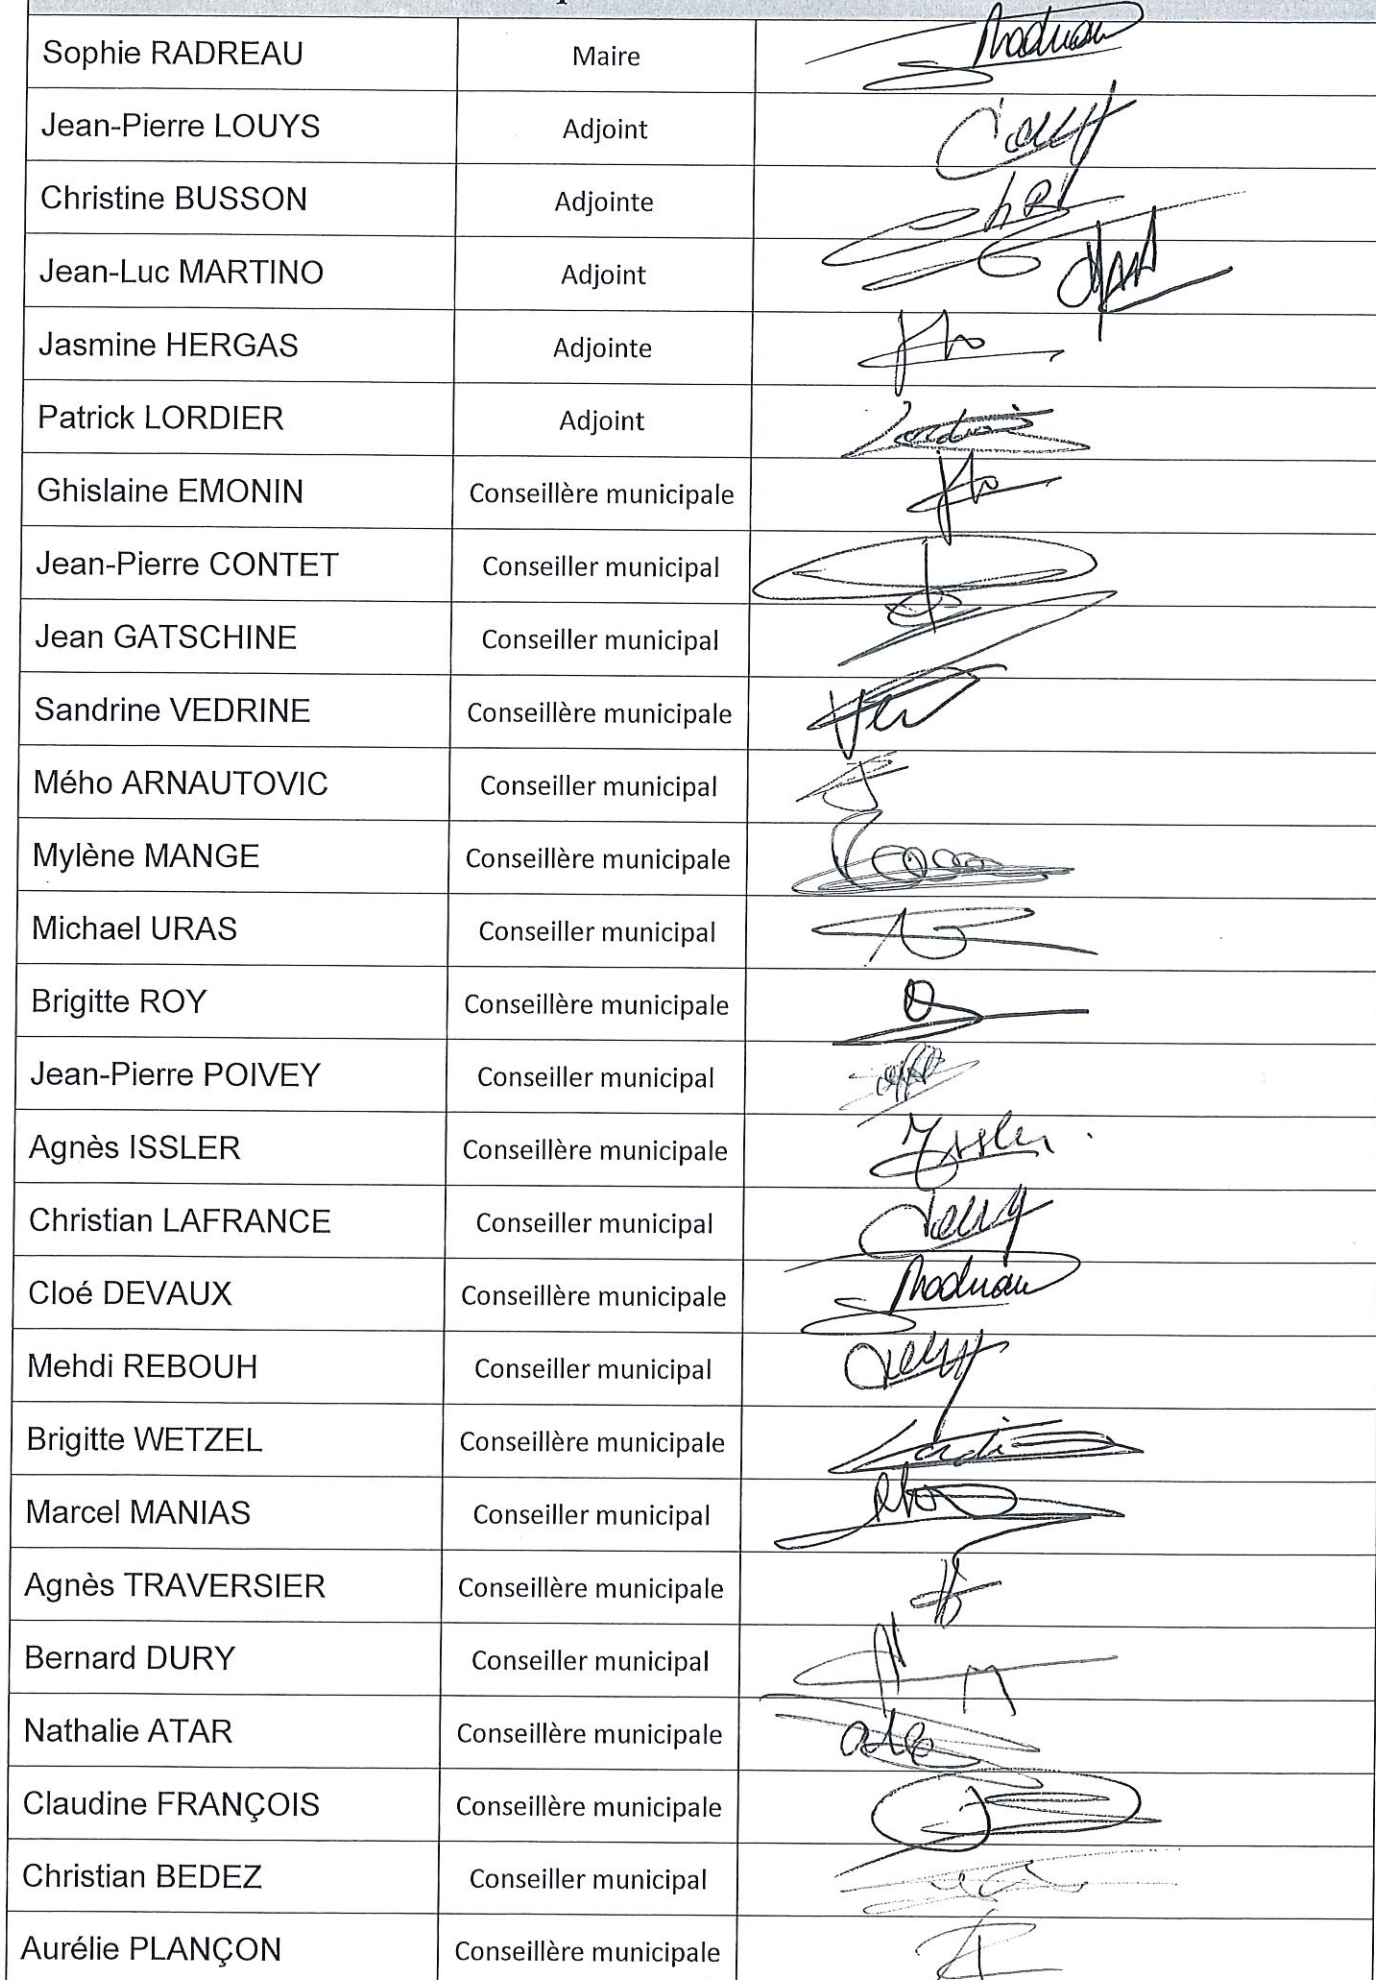 Sophie RADREAU Maire
Jean-Pierre LOUYS Adjoint
Christine BUSSON Adjointe
Jean-Luc MARTINO Adjoint
Jasmine HERGAS Adjointe
Patrick LORDIER Adjoint
Ghislaine EMONIN Conseillère municipale
Jean-Pierre CONTET Conseiller municipal
Jean GATSCHINE Conseiller municipal
Sandrine VEDRINE Conseillère municipale
Mého ARNAUTOVIC Conseiller municipal
Mylène MANGE Conseillère municipale
Michael URAS Conseiller municipal
Brigitte ROY Conseillère municipale
Jean-Pierre POIVEY Conseiller municipal
Agnès ISSLER Conseillère municipale Issler
Christian LAFRANCE Conseiller municipal
Cloé DEVAUX Conseillère municipale
Mehdi REBOUH Conseiller municipal
Brigitte WETZEL Conseillère municipale
Marcel MANIAS Conseiller municipal
Agnès TRAVERSIER Conseillère municipale
Bernard DURY Conseiller municipal
Nathalie ATAR Conseillère municipale
Claudine FRANÇOIS Conseillère municipale
Christian BEDEZ Conseiller municipal
Aurélie PLANÇON Conseillère municipale